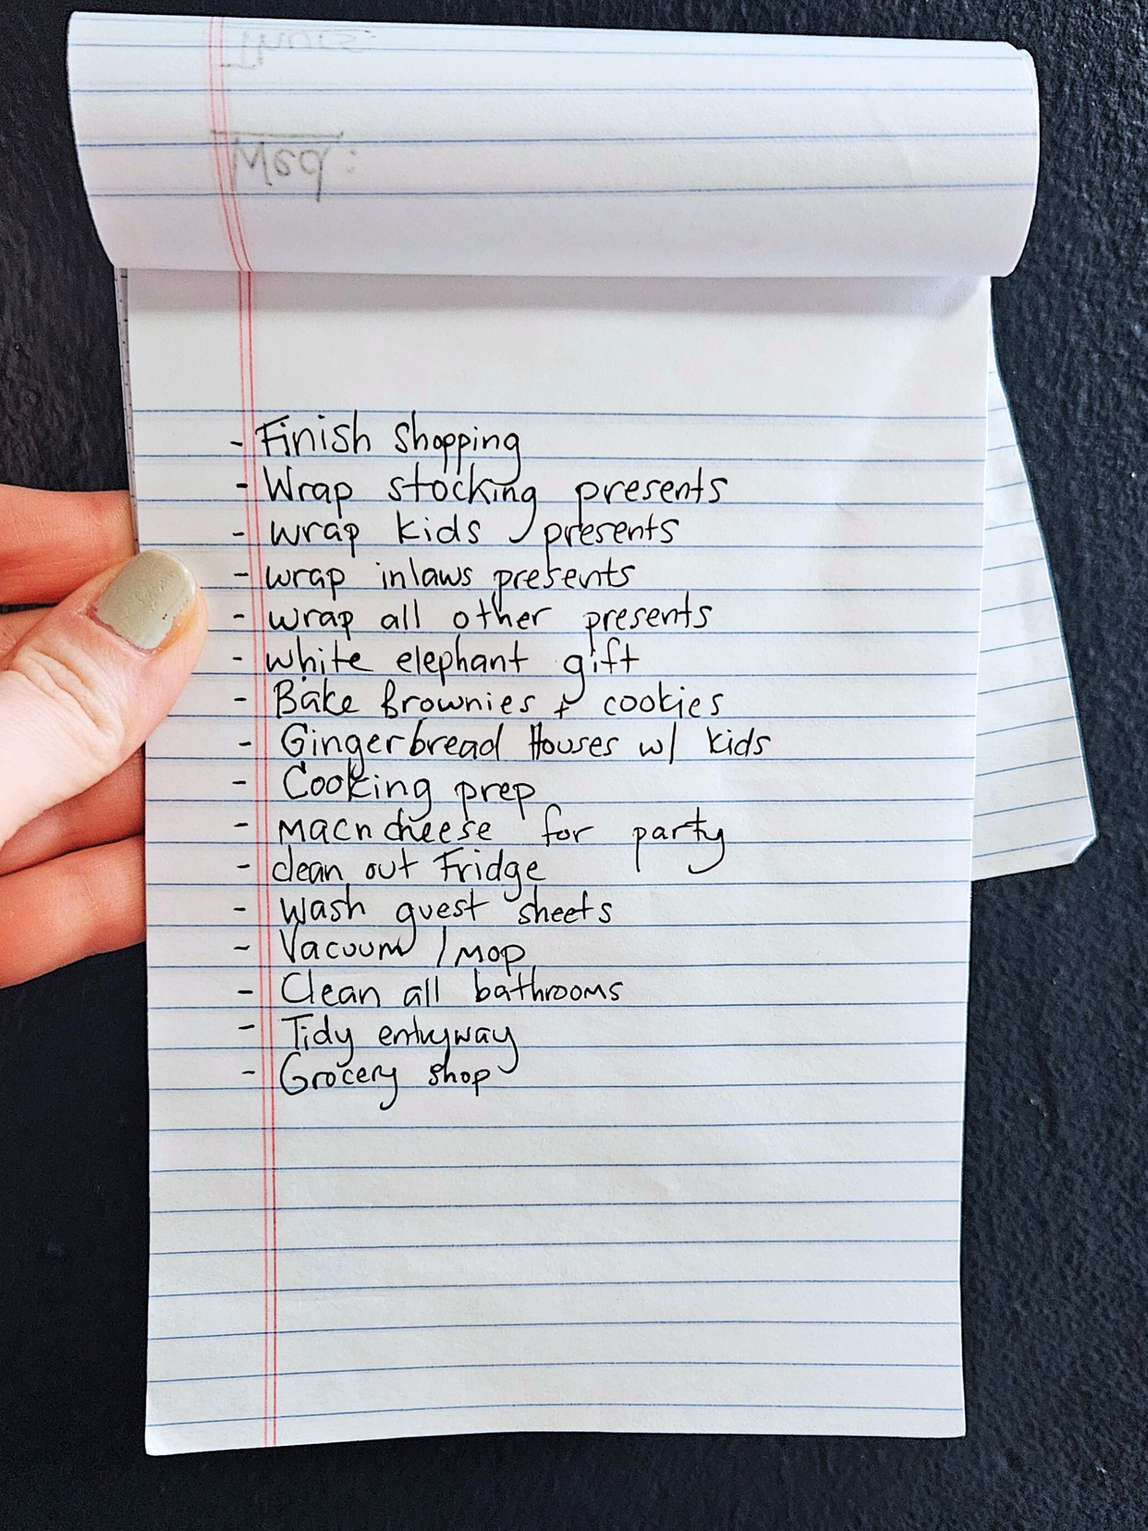 Med:
- Finish shopping
- Wrap stocking presents
- wrap kids presents
- wrap inlaws presents
- wrap all other presents
- white elephant gift
- Bake Brownies + cookies
- Gingerbread Houses w/ kids
- Cooking prep
- macncheese for party
- clean out Fridge
- Wash guest sheets
- Vacuum / mop
- Clean all bathrooms
- Tidy entryway
- Grocery shop